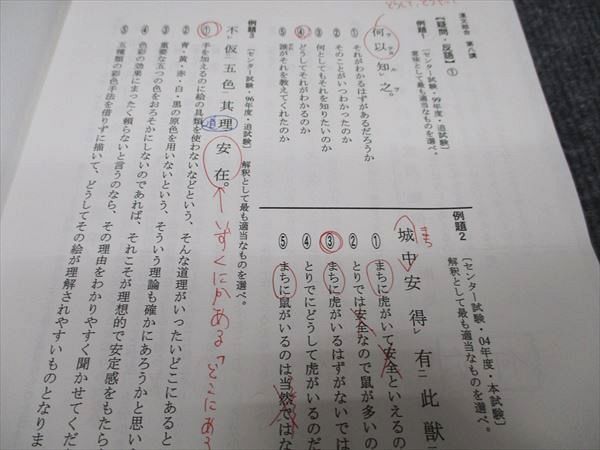 漢文部会 第八講
【疑問・反語】①
例題1 〔センター試験・99年度・追試験〕
意味として最も適当なものを選べ。
何以知之。
① それがわかるはずがあるだろうか
② そのことがいつわかったのか
③ 何としてもそれを知りたいのか
④ どうしてそれがわかるのか
⑤ 誰がそれを教えてくれたのか
例題2 〔センター試験・04年度・本試験〕
解釈として最も適当なものを選べ。
まち
城中安得有此獣
① まちに虎がいて安全といえるの
② とりでは安全なので鼠が多いの
③ まちに虎がいるはずがないでは
④ とりでにどうして虎がいるのだ
⑤ まちに鼠がいるのは当然ではな
例題3 〔センター試験・96年度・追試験〕 解釈として最も適当なものを選べ。
不仮五色其理安在。
←いずくにかある「どこにある
① 手を加えるのに絵の具類を使わないなどという、そんな道理がいったいどこにあると
② 青・黄・赤・白・黒の原色を用いないという、そういう理論も確かにあろうかと思い
③ 重要な五つの色をおろそかにしないのであれば、それこそが理想的で安定感をもたら
④ 色彩の効果にまったく頼らないと言うのなら、その理由をわかりやすく聞かせてくだ
⑤ 五種類の彩色手法を借りずに描いて、どうしてその絵が理解されやすいものとなりま